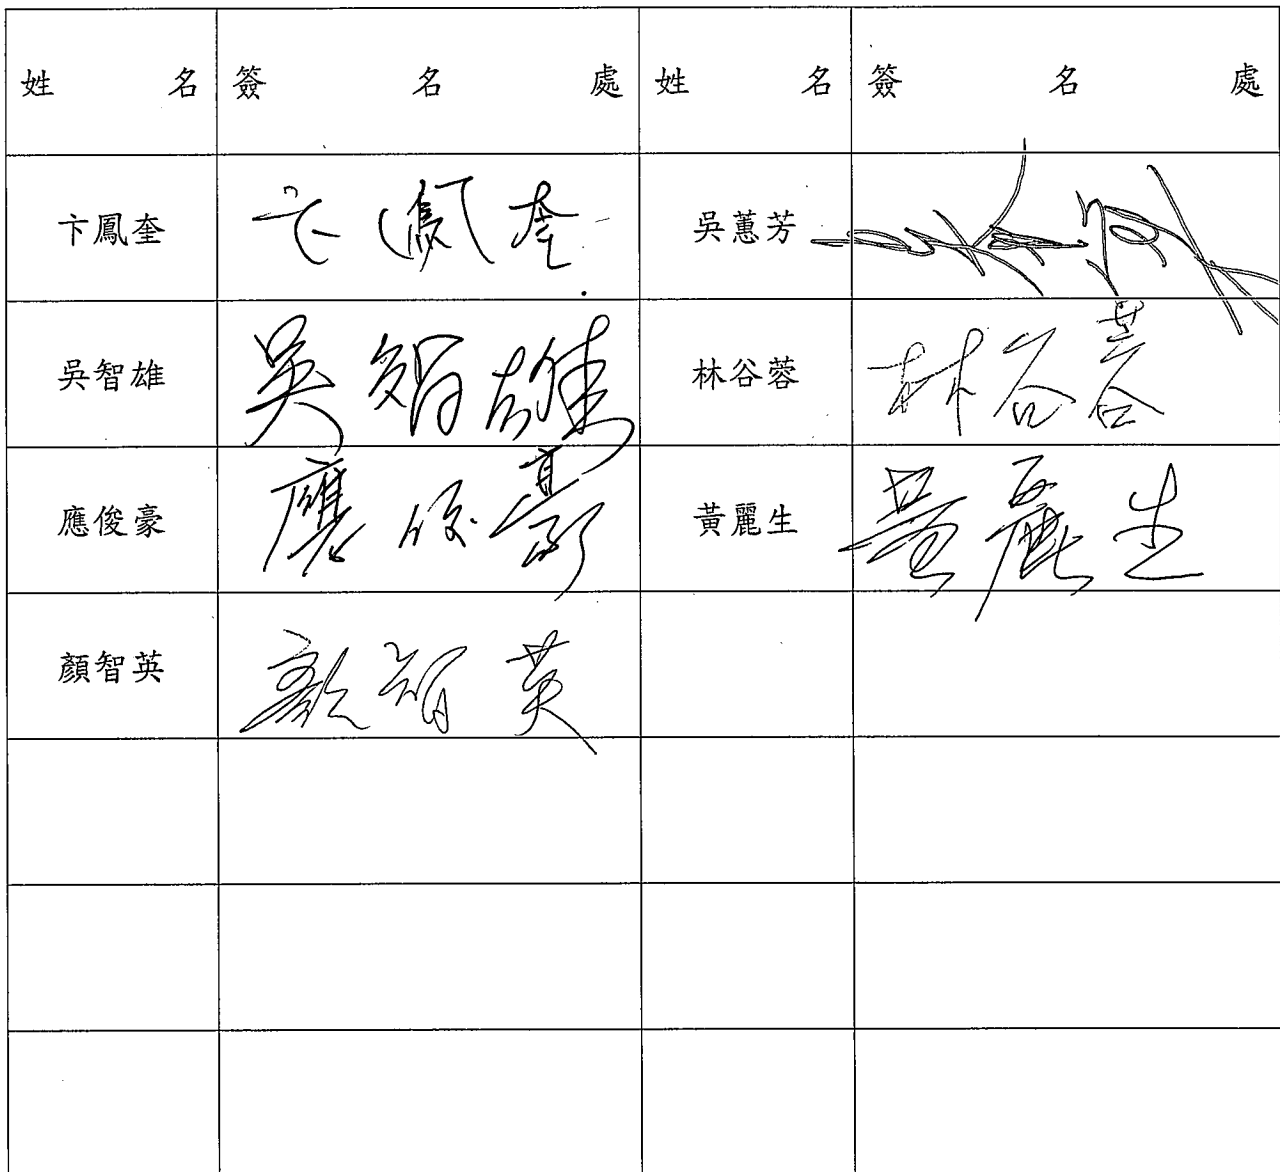 姓名 簽名處 姓名 簽名處
卞鳳奎 卞鳳奎 吳蕙芳
吳智雄 吳智雄 林谷蓉 林谷蓉
應俊豪 應俊豪 黃麗生 黃麗生
顏智英 顏智英